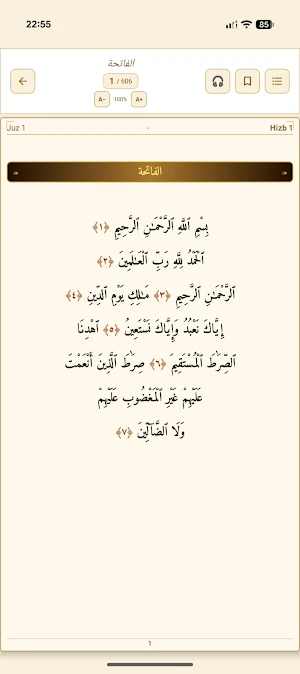 22:55
85
الفاتحة
1 / 606
A-
100%
A+
Juz 1
Hizb 1
الفاتحة
بِسْمِ ٱللَّهِ ٱلرَّحْمَٰنِ ٱلرَّحِيمِ ﴿١﴾
ٱلْحَمْدُ لِلَّهِ رَبِّ ٱلْعَٰلَمِينَ ﴿٢﴾
ٱلرَّحْمَٰنِ ٱلرَّحِيمِ ﴿٣﴾ مَٰلِكِ يَوْمِ ٱلدِّينِ ﴿٤﴾
إِيَّاكَ نَعْبُدُ وَإِيَّاكَ نَسْتَعِينُ ﴿٥﴾ ٱهْدِنَا
ٱلصِّرَٰطَ ٱلْمُسْتَقِيمَ ﴿٦﴾ صِرَٰطَ ٱلَّذِينَ أَنْعَمْتَ
عَلَيْهِمْ غَيْرِ ٱلْمَغْضُوبِ عَلَيْهِمْ
وَلَا ٱلضَّآلِّينَ ﴿٧﴾
1